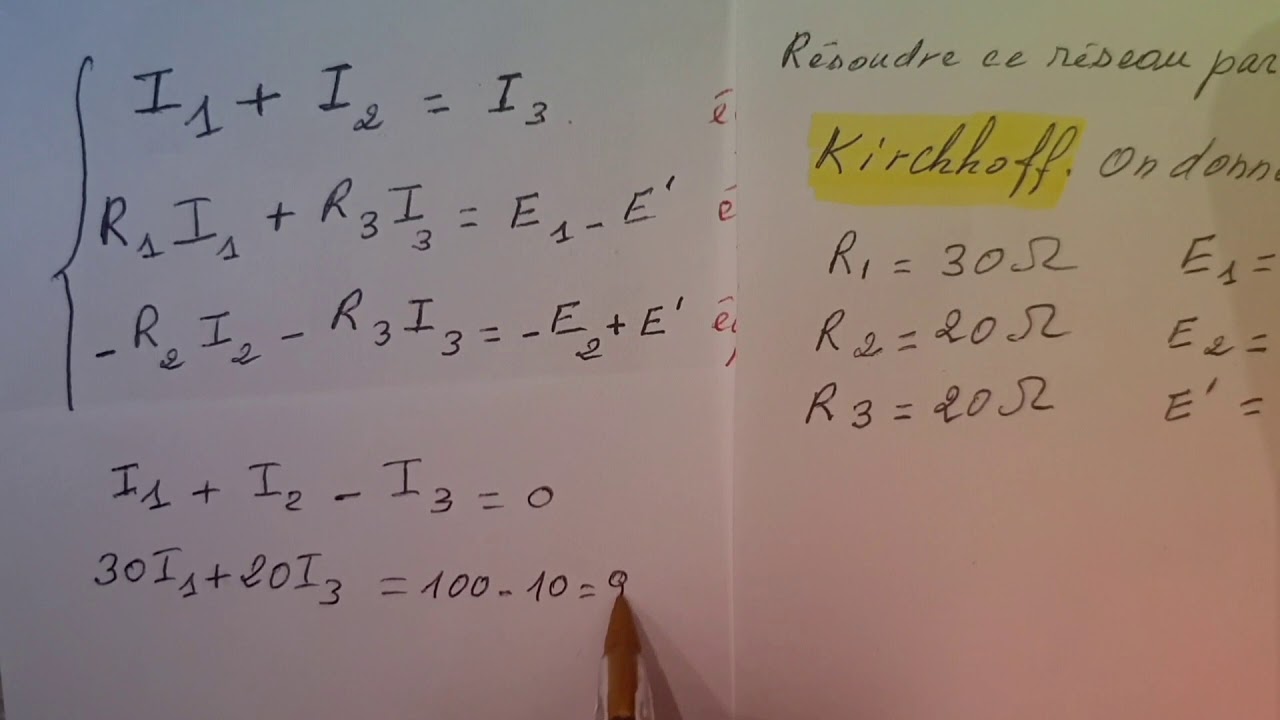 I₁ + I₂ = I₃
R₁I₁ + R₃I₃ = E₁ - E'
- R₂I₂ - R₃I₃ = -E₂ + E'
I₁ + I₂ - I₃ = 0
30I₁ + 20I₃ = 100 - 10 = 9
Résoudre ce réseau par
Kirchhoff. On donne
R₁ = 30Ω E₁ =
R₂ = 20Ω E₂ =
R₃ = 20Ω E' =